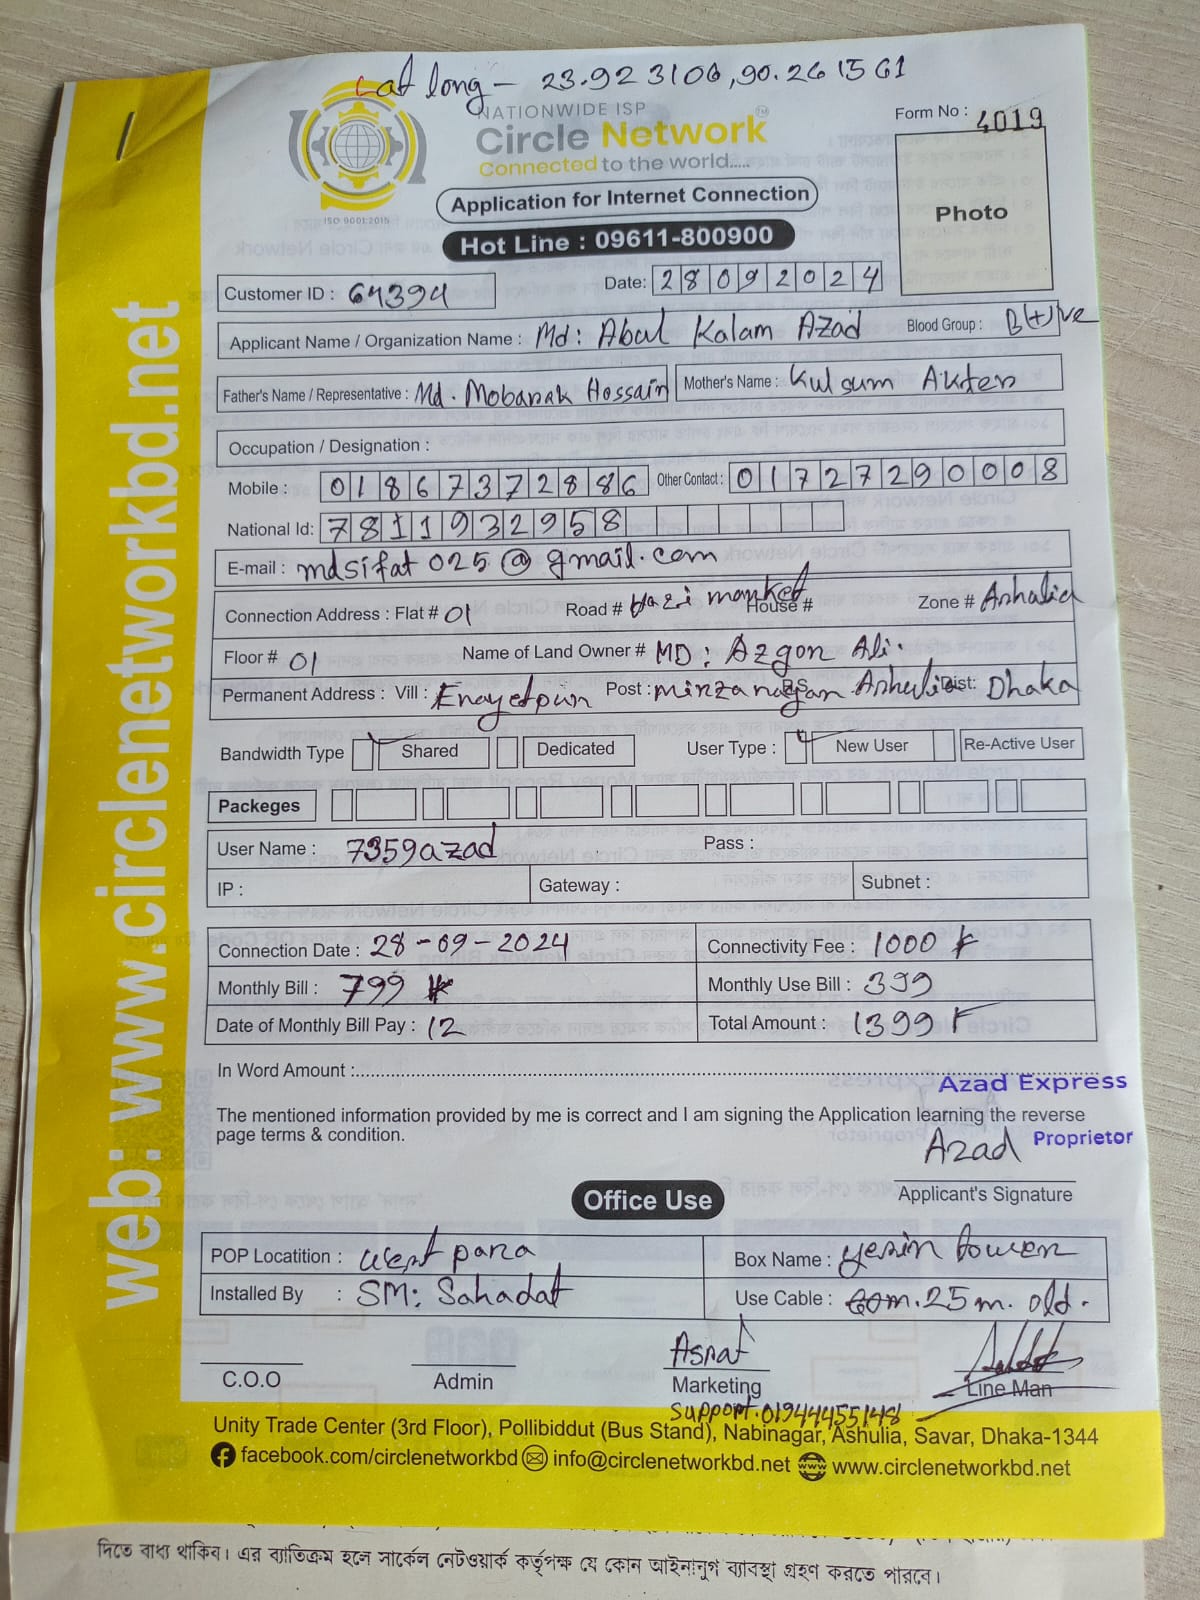 Lat long - 23.923106,90.261561
NATIONWIDE ISP
Circle Network
Connected to the world.....
ISO 9001:2015
Form No : 4019
Photo
Application for Internet Connection
Hot Line : 09611-800900
Customer ID : 64394
Date: 28092024
Applicant Name / Organization Name : Md: Abul Kalam Azad Blood Group : B(+)ve
Father's Name / Representative : Md. Mobarak Hossain Mother's Name : Kulsum Akter
Occupation / Designation :
Mobile : 01867372886 Other Contact : 01727290008
National Id: 7811932958
E-mail : mdsifat025@gmail.com
Connection Address : Flat # 01 Road # Hazi market House # Zone # Ashulia
Floor # 01 Name of Land Owner # MD: Azgor Ali.
Permanent Address : Vill : Enayetpur Post : mirzanagar P.S Ashulia Dist: Dhaka
Bandwidth Type Shared Dedicated User Type : New User Re-Active User
Packeges
User Name : 7359azad Pass :
IP : Gateway : Subnet :
Connection Date : 28-09-2024 Connectivity Fee : 1000
Monthly Bill : 799 Monthly Use Bill : 399
Date of Monthly Bill Pay : 12 Total Amount : 1399
In Word Amount :
Azad Express
The mentioned information provided by me is correct and I am signing the Application learning the reverse
page terms & condition.
Azad Proprietor
Applicant's Signature
Office Use
POP Locatition : West para Box Name : yesin tower
Installed By : SM: Sahadat Use Cable : 25 m. old.
Asrat
C.O.O Admin Marketing Line Man
Support. 01944455148
Unity Trade Center (3rd Floor), Pollibiddut (Bus Stand), Nabinagar, Ashulia, Savar, Dhaka-1344
facebook.com/circlenetworkbd info@circlenetworkbd.net www.circlenetworkbd.net
web: www.circlenetworkbd.net
দিতে বাধ্য থাকিব। এর ব্যতিক্রম হলে সার্কেল নেটওয়ার্ক কর্তৃপক্ষ যে কোন আইনানুগ ব্যাবস্থা গ্রহণ করতে পারবে।